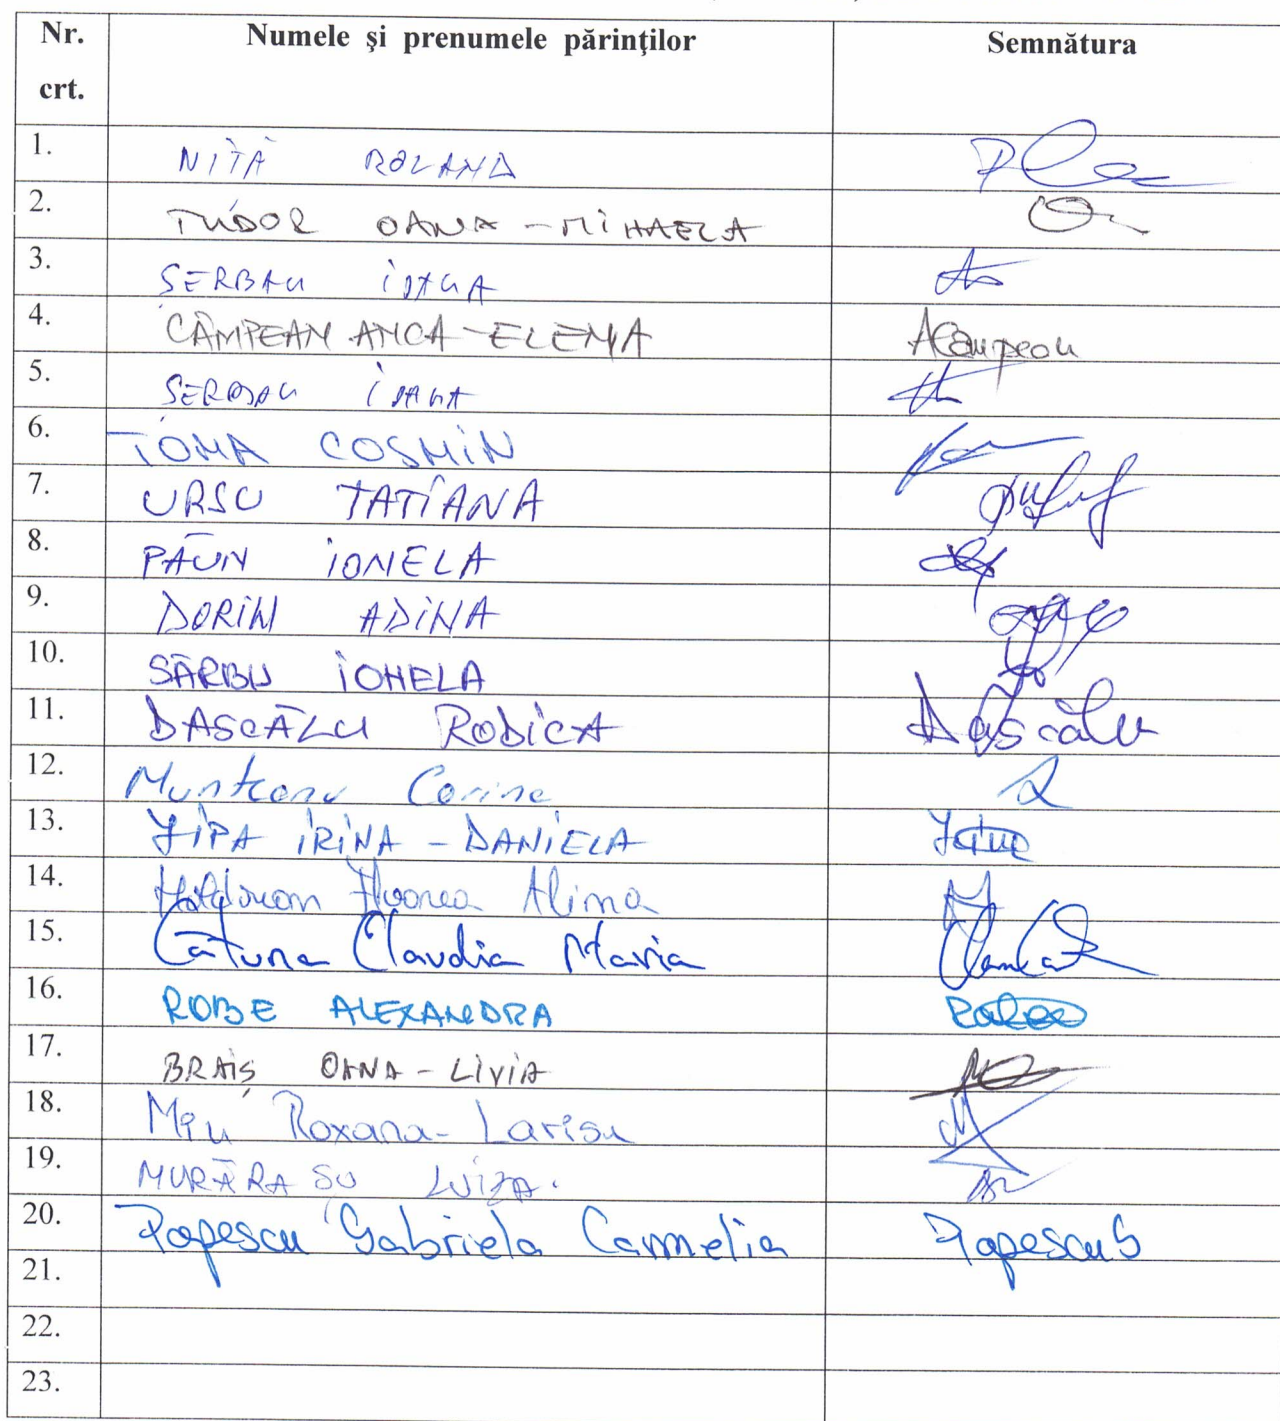 Nr. crt. Numele şi prenumele părinţilor Semnătura
1. NIȚĂ ROLAND
2. TUDOR OANA-MIHAELA
3. SERBAN IOANA
4. CÂMPEAN ANCA-ELENA ACampean
5. SERBAN IOANA
6. TOMA COSMIN
7. URSU TATIANA
8. PĂUN IONELA
9. DORIN ADINA
10. SÂRBU IONELA
11. DASCĂLU RODICA Dascălu
12. Munteanu Corina
13. JIPA IRINA-DANIELA
14. Alina
15. Cătuna Claudia Maria
16. ROBE ALEXANDRA
17. BRAIȘ OANA-LIVIA
18. Miu Roxana-Larisa
19. MURĂRASU LUIZA.
20. Popescu Gabriela Carmelia PopescuG
21.
22.
23.